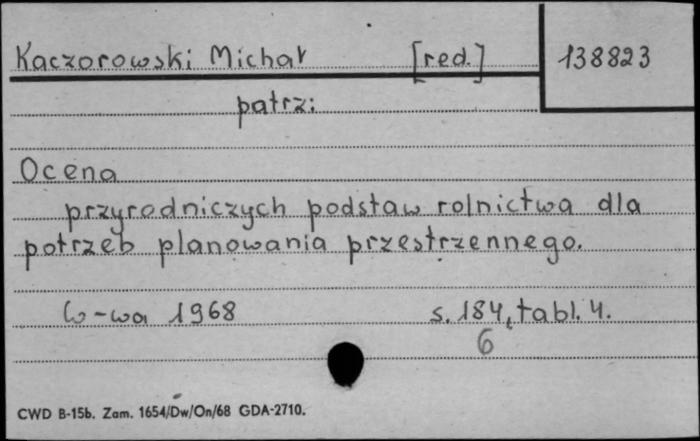 Kaczorowski Michał [red.] 138823
patrz:
Ocena
przyrodniczych podstaw rolnictwa dla
potrzeb planowania przestrzennego.
W-wa 1968 s. 184, tabl. 4.
6
CWD B-15b. Zam. 1654/Dw/On/68 GDA-2710.